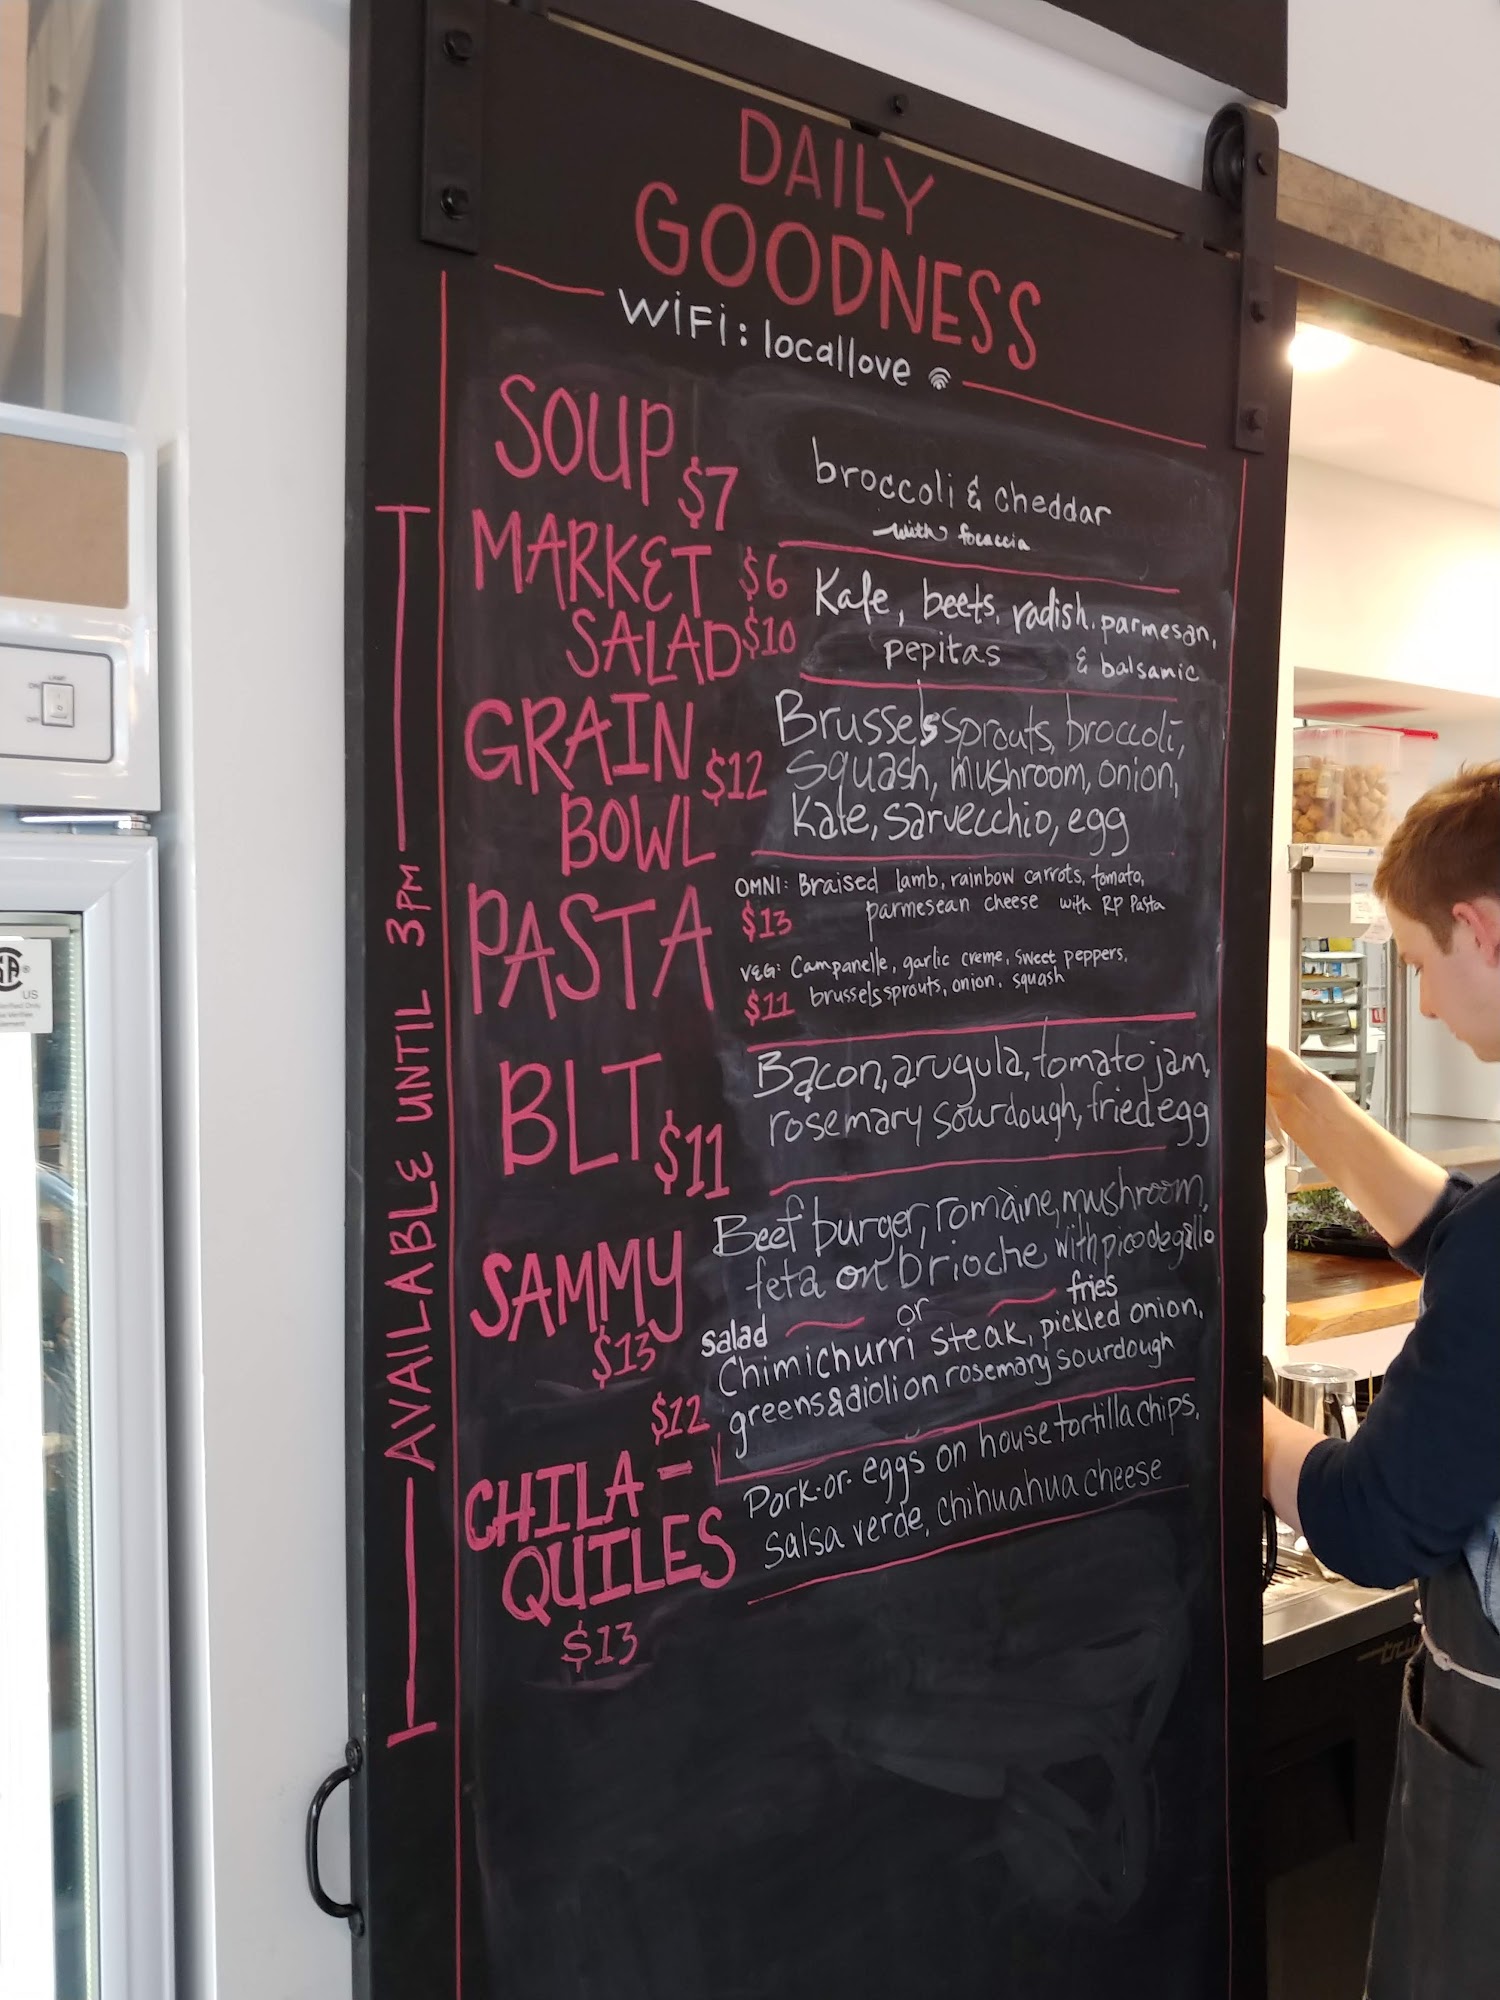 DAILY
GOODNESS
WiFi: locallove
SOUP $7
broccoli & cheddar
with focaccia
MARKET $6
SALAD $10
Kale, beets, radish, parmesan,
pepitas & balsamic
GRAIN
BOWL $12
Brussels sprouts, broccoli,
squash, mushroom, onion,
Kale, sarvecchio, egg
PASTA
OMNI: Braised lamb, rainbow carrots, tomato,
$13 parmesean cheese with RP Pasta
VEG: Campanelle, garlic creme, sweet peppers,
$11 brussels sprouts, onion, squash
BLT $11
Bacon, arugula, tomato jam,
rosemary sourdough, fried egg
SAMMY
$13
Beef burger, romaine, mushroom,
feta on brioche with pico de gallo
salad or fries
$12
Chimichurri steak, pickled onion,
greens & aioli on rosemary sourdough
CHILA-
QUILES
$13
Pork-or-eggs on house tortilla chips,
salsa verde, chihuahua cheese
AVAILABLE UNTIL 3PM
LAMP
ON
OFF
US